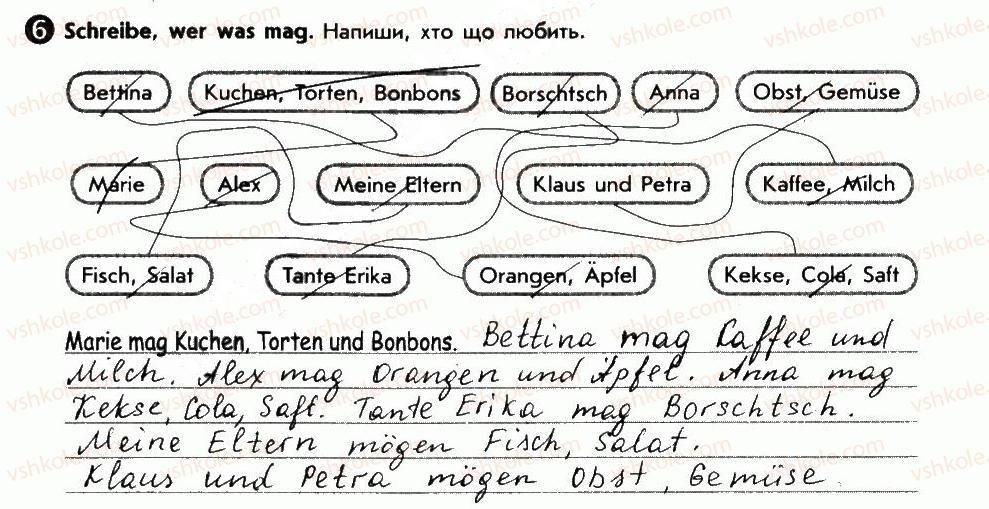 6 Schreibe, wer was mag. Напиши, хто що любить.
Bettina Kuchen, Torten, Bonbons Borschtsch Anna Obst, Gemüse
Marie Alex Meine Eltern Klaus und Petra Kaffee, Milch
Fisch, Salat Tante Erika Orangen, Äpfel Kekse, Cola, Saft
Marie mag Kuchen, Torten und Bonbons. Bettina mag Kaffee und
Milch. Alex mag Orangen und Äpfel. Anna mag
Kekse, Cola, Saft. Tante Erika mag Borschtsch.
Meine Eltern mögen Fisch, Salat.
Klaus und Petra mögen Obst, Gemüse.
vshkole.com